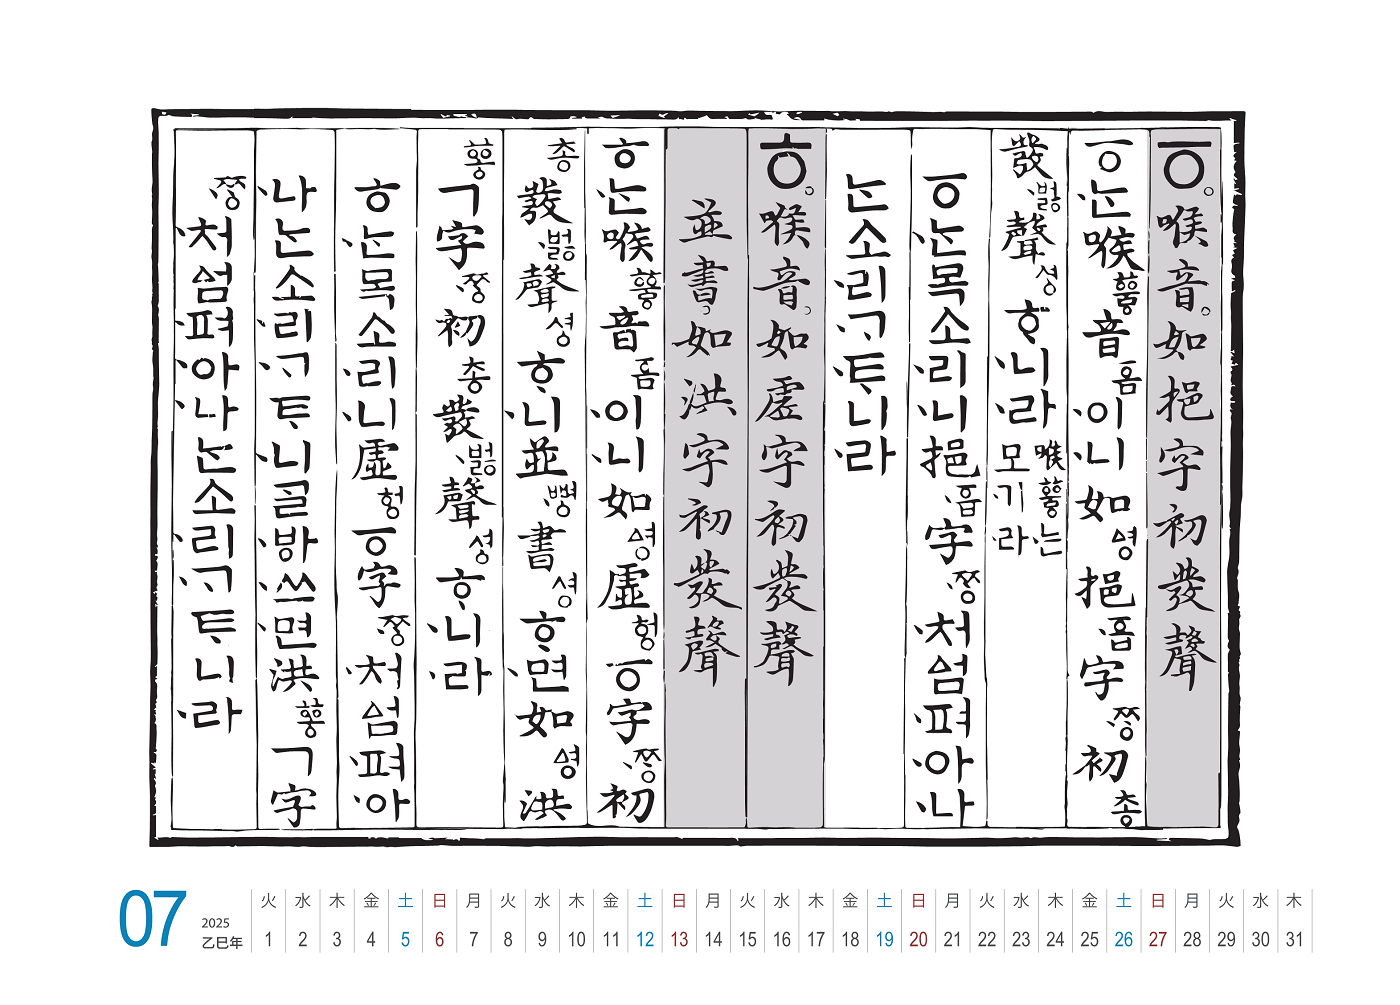 ㆆ。喉音。如挹字初發聲
ㆆ·ᄂᆞᆫ喉ᅘᅮᇢ音ᅙᅳᆷ·이·니如ᅀᅧᆼ挹·ᅙᅳᆸ字·ᄍᆞᆼ初총
發·벓聲셩·ᄒᆞ·니·라喉ᅘᅮᇢ·는모·기·라
ㆆ·ᄂᆞᆫ목소·리·니挹·ᅙᅳᆸ字·ᄍᆞᆼ·처ᅀᅥᆷ·펴·아·나
ᄂᆞᆫ소·리·ᄀᆞ·ᄐᆞ·니·라
ㅎ。喉音。如虛字初發聲
並書。如洪字初發聲
ㅎ·ᄂᆞᆫ喉ᅘᅮᇢ音ᅙᅳᆷ·이·니如ᅀᅧᆼ虛헝ㆆ字·ᄍᆞᆼ初
총發·벓聲셩·ᄒᆞ·니並·뼝書셩·ᄒᆞ·면如ᅀᅧᆼ洪
ᅘᅩᇰㄱ字·ᄍᆞᆼ初총發·벓聲셩·ᄒᆞ·니·라
ㅎ·ᄂᆞᆫ목소·리·니虛헝ㆆ字·ᄍᆞᆼ·처ᅀᅥᆷ·펴·아
·나ᄂᆞᆫ소·리·ᄀᆞᄐᆞ·니ᄀᆞᆯ·ᄫᅡ·쓰·면洪ᅘᅩᇰㄱ字
·ᄍᆞᆼ·처ᅀᅥᆷ·펴·아·나ᄂᆞᆫ소·리·ᄀᆞᄐᆞ니·라
07
2025
乙巳年
火 水 木 金 土 日 月 火 水 木 金 土 日 月 火 水 木 金 土 日 月 火 水 木 金 土 日 月 火 水 木
1 2 3 4 5 6 7 8 9 10 11 12 13 14 15 16 17 18 19 20 21 22 23 24 25 26 27 28 29 30 31